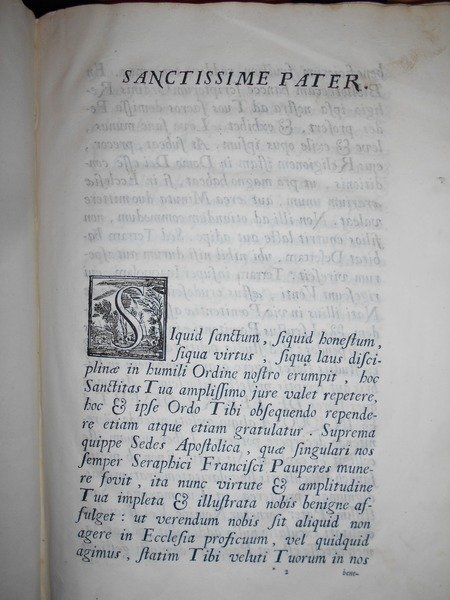 SANCTISSIME PATER.
SIquid sanctum, siquid honestum,
siqua virtus, siqua laus disci-
plinæ in humili Ordine nostro erumpit, hoc
Sanctitas Tua amplissimo jure valet repetere,
hoc & ipse Ordo Tibi obsequendo repende-
re etiam atque etiam gratulatur. Suprema
quippe Sedes Apostolica, quæ singulari nos
semper Seraphici Francisci Pauperes mune-
re fovit, ita nunc virtute & amplitudine
Tua impleta & illustrata nobis benigne af-
fulget: ut verendum nobis sit aliquid non
agere in Ecclesia proficuum, vel quidquid
agimus, statim Tibi veluti Tuorum in nos
2 bene-